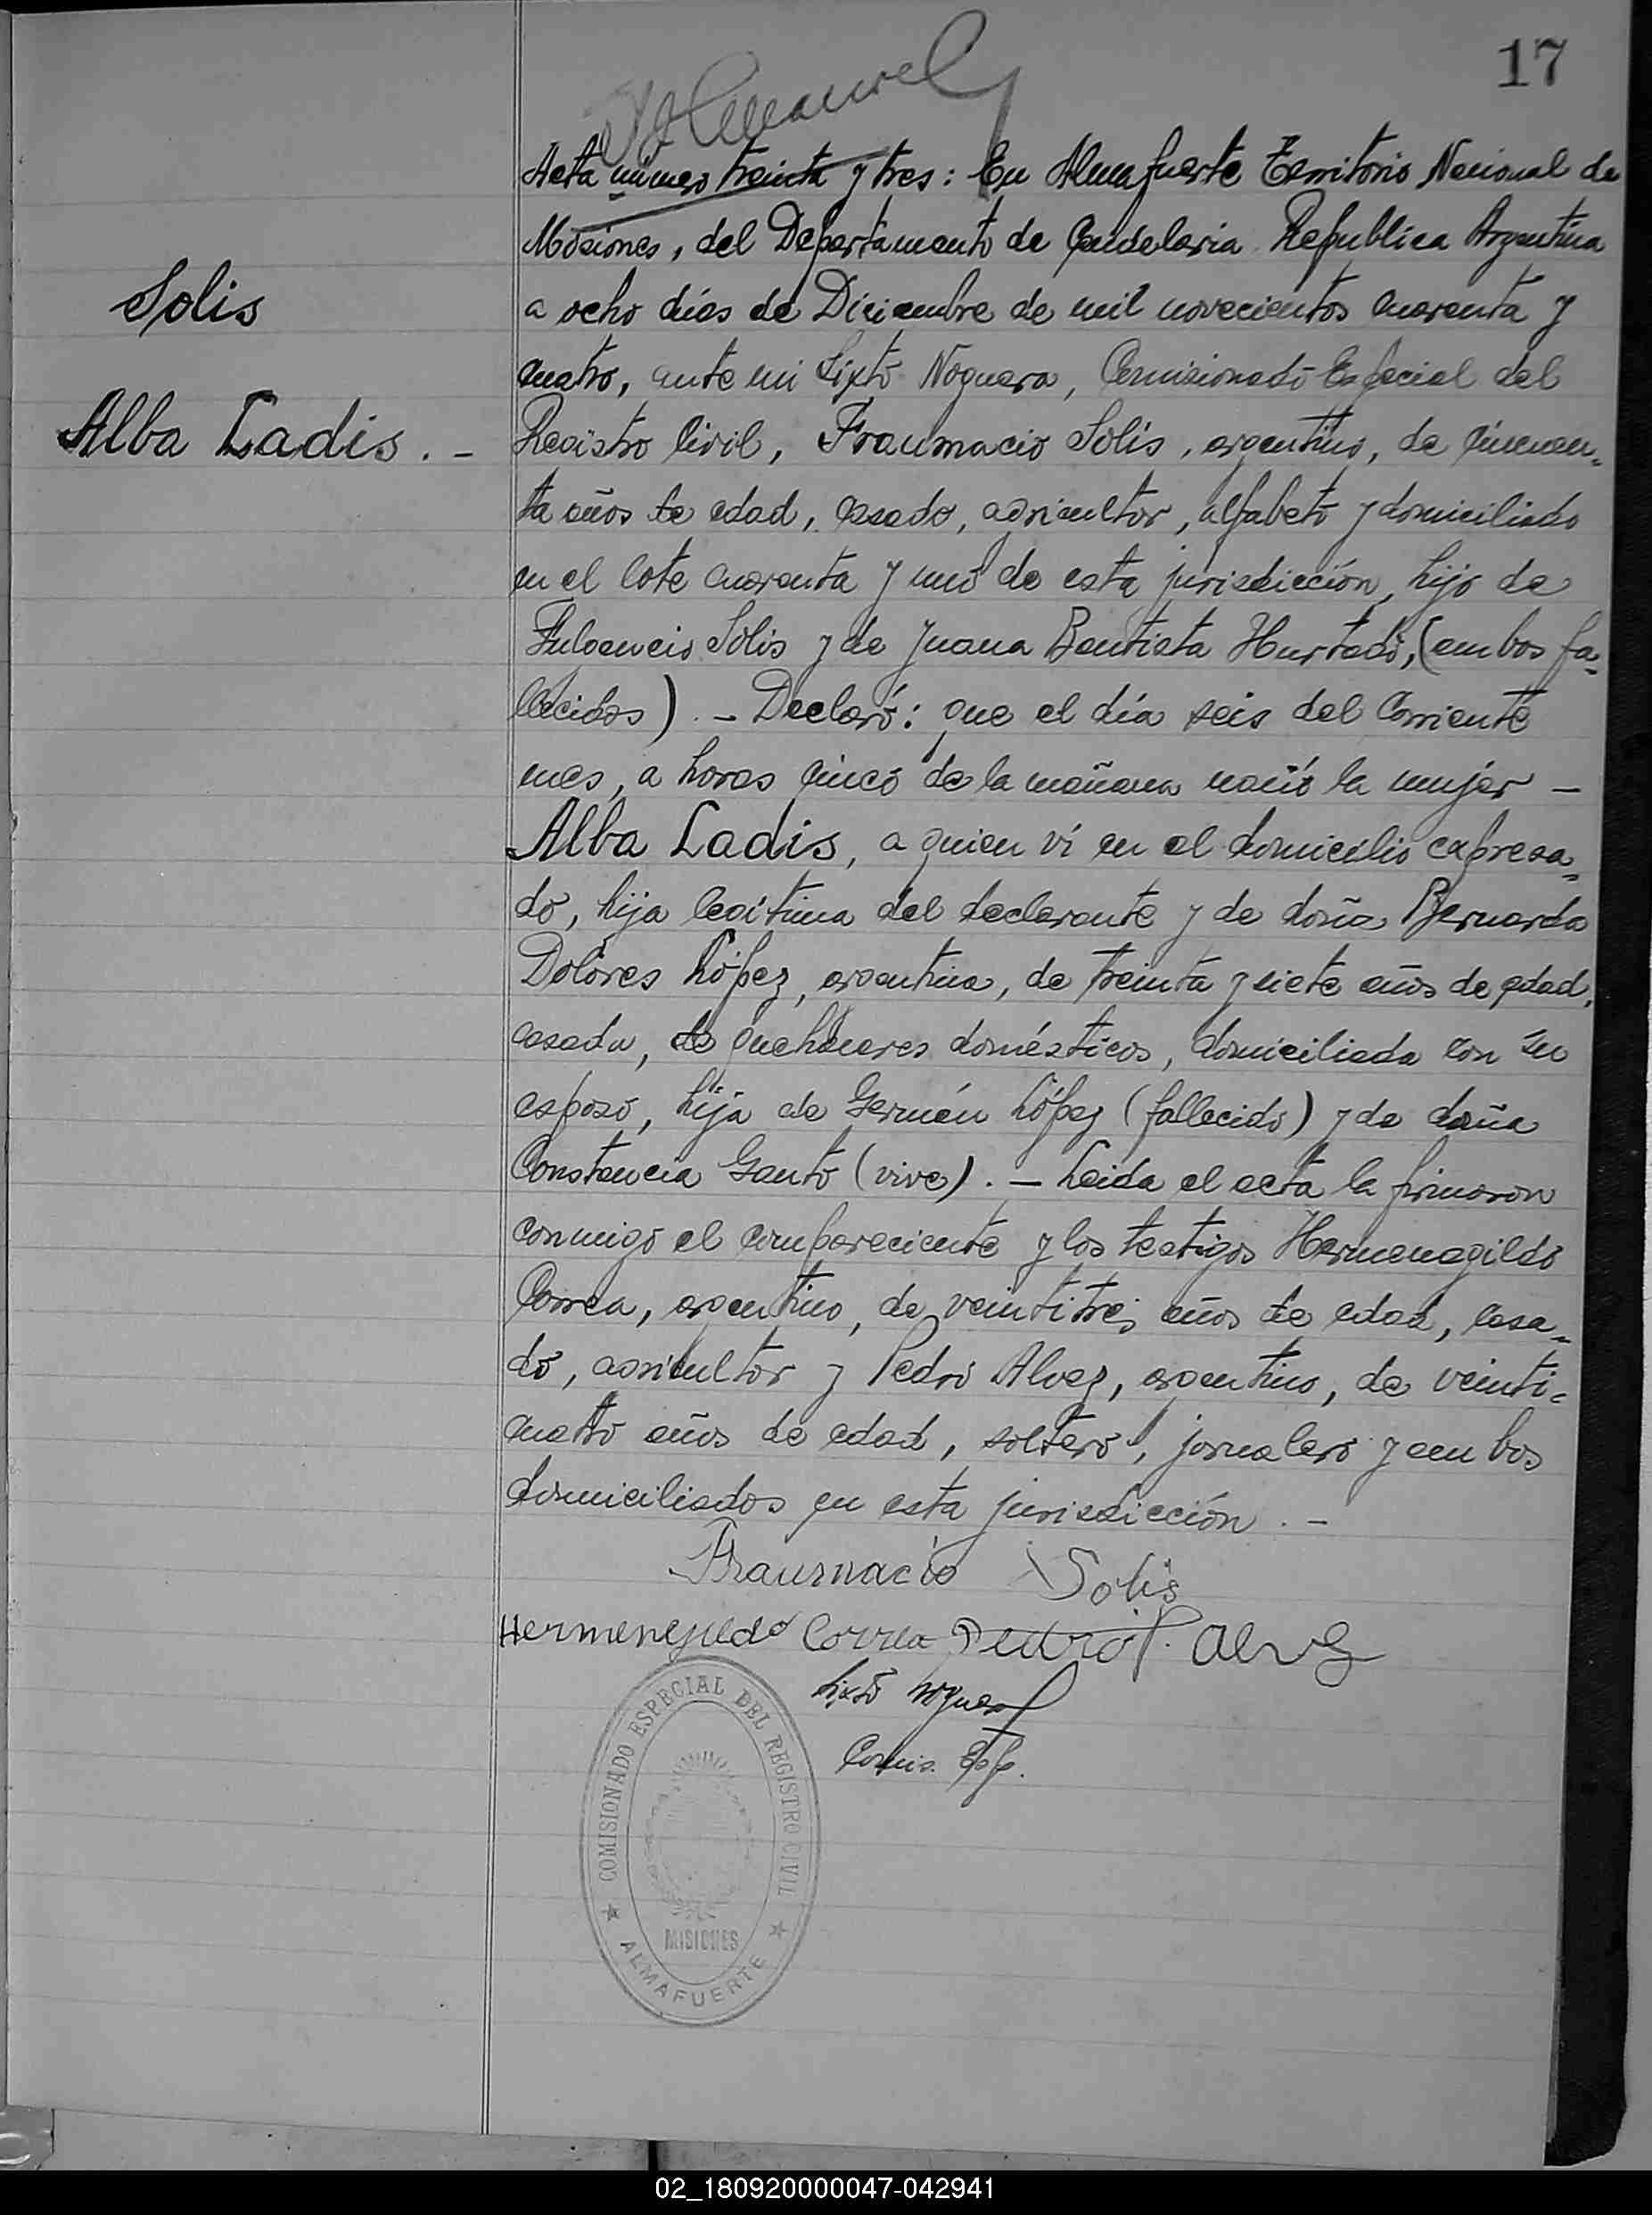 17
Acta número treinta y tres: En Almafuerte Territorio Nacional de
Misiones, del Departamento de Candelaria República Argentina
a ocho días de Diciembre de mil novecientos cuarenta y
Solis
cuatro, ante mi Sixto Noguera, Comisionado Especial del
Alba Ladis . -
Registro Civil, Fraumacio Solis, argentino, de cincuen=
ta años de edad, casado, agricultor, alfabeto y domiciliado
en el lote cuarenta y uno de esta jurisdicción, hijo de
Fulgencio Solis y de Juana Bautista Hurtado, (ambos fa=
llecidos) . - Declaró: que el día seis del corriente
mes, a horas cinco de la mañana nació la mujer -
Alba Ladis, a quien ví en el domicilio expresa=
do, hija legitima del declarante y de doña Bernarda
Dolores López, argentina, de treinta y siete años de edad,
casada, de quehaceres domésticos, domiciliada con su
esposo, hija de Germén López (fallecido) y de doña
Constancia Gauto (vive) . - Leida el acta la firmaron
conmigo el compareciente y los testigos Hermenegildo
Correa, argentino, de veintitres años de edad, casa=
do, agricultor y Pedro Alvez, argentino, de veinti=
cuatro años de edad, soltero, jornalero y ambos
domiciliados en esta jurisdicción . -
Fraumacio Solis
Hermenegildo Correa Pedro P. Alvez
Sixto Noguera
Comis. Esp.
COMISIONADO ESPECIAL DEL REGISTRO CIVIL
MISIONES
ALMAFUERTE
02_180920000047-042941